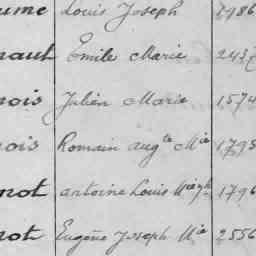 ume Louis Joseph 1986
naut Emile Marie 243
nois Julien Marie 1574
nois Romain aug te M ie 1795
not antoine Louis 1796
not Eugène Joseph M ie 2556